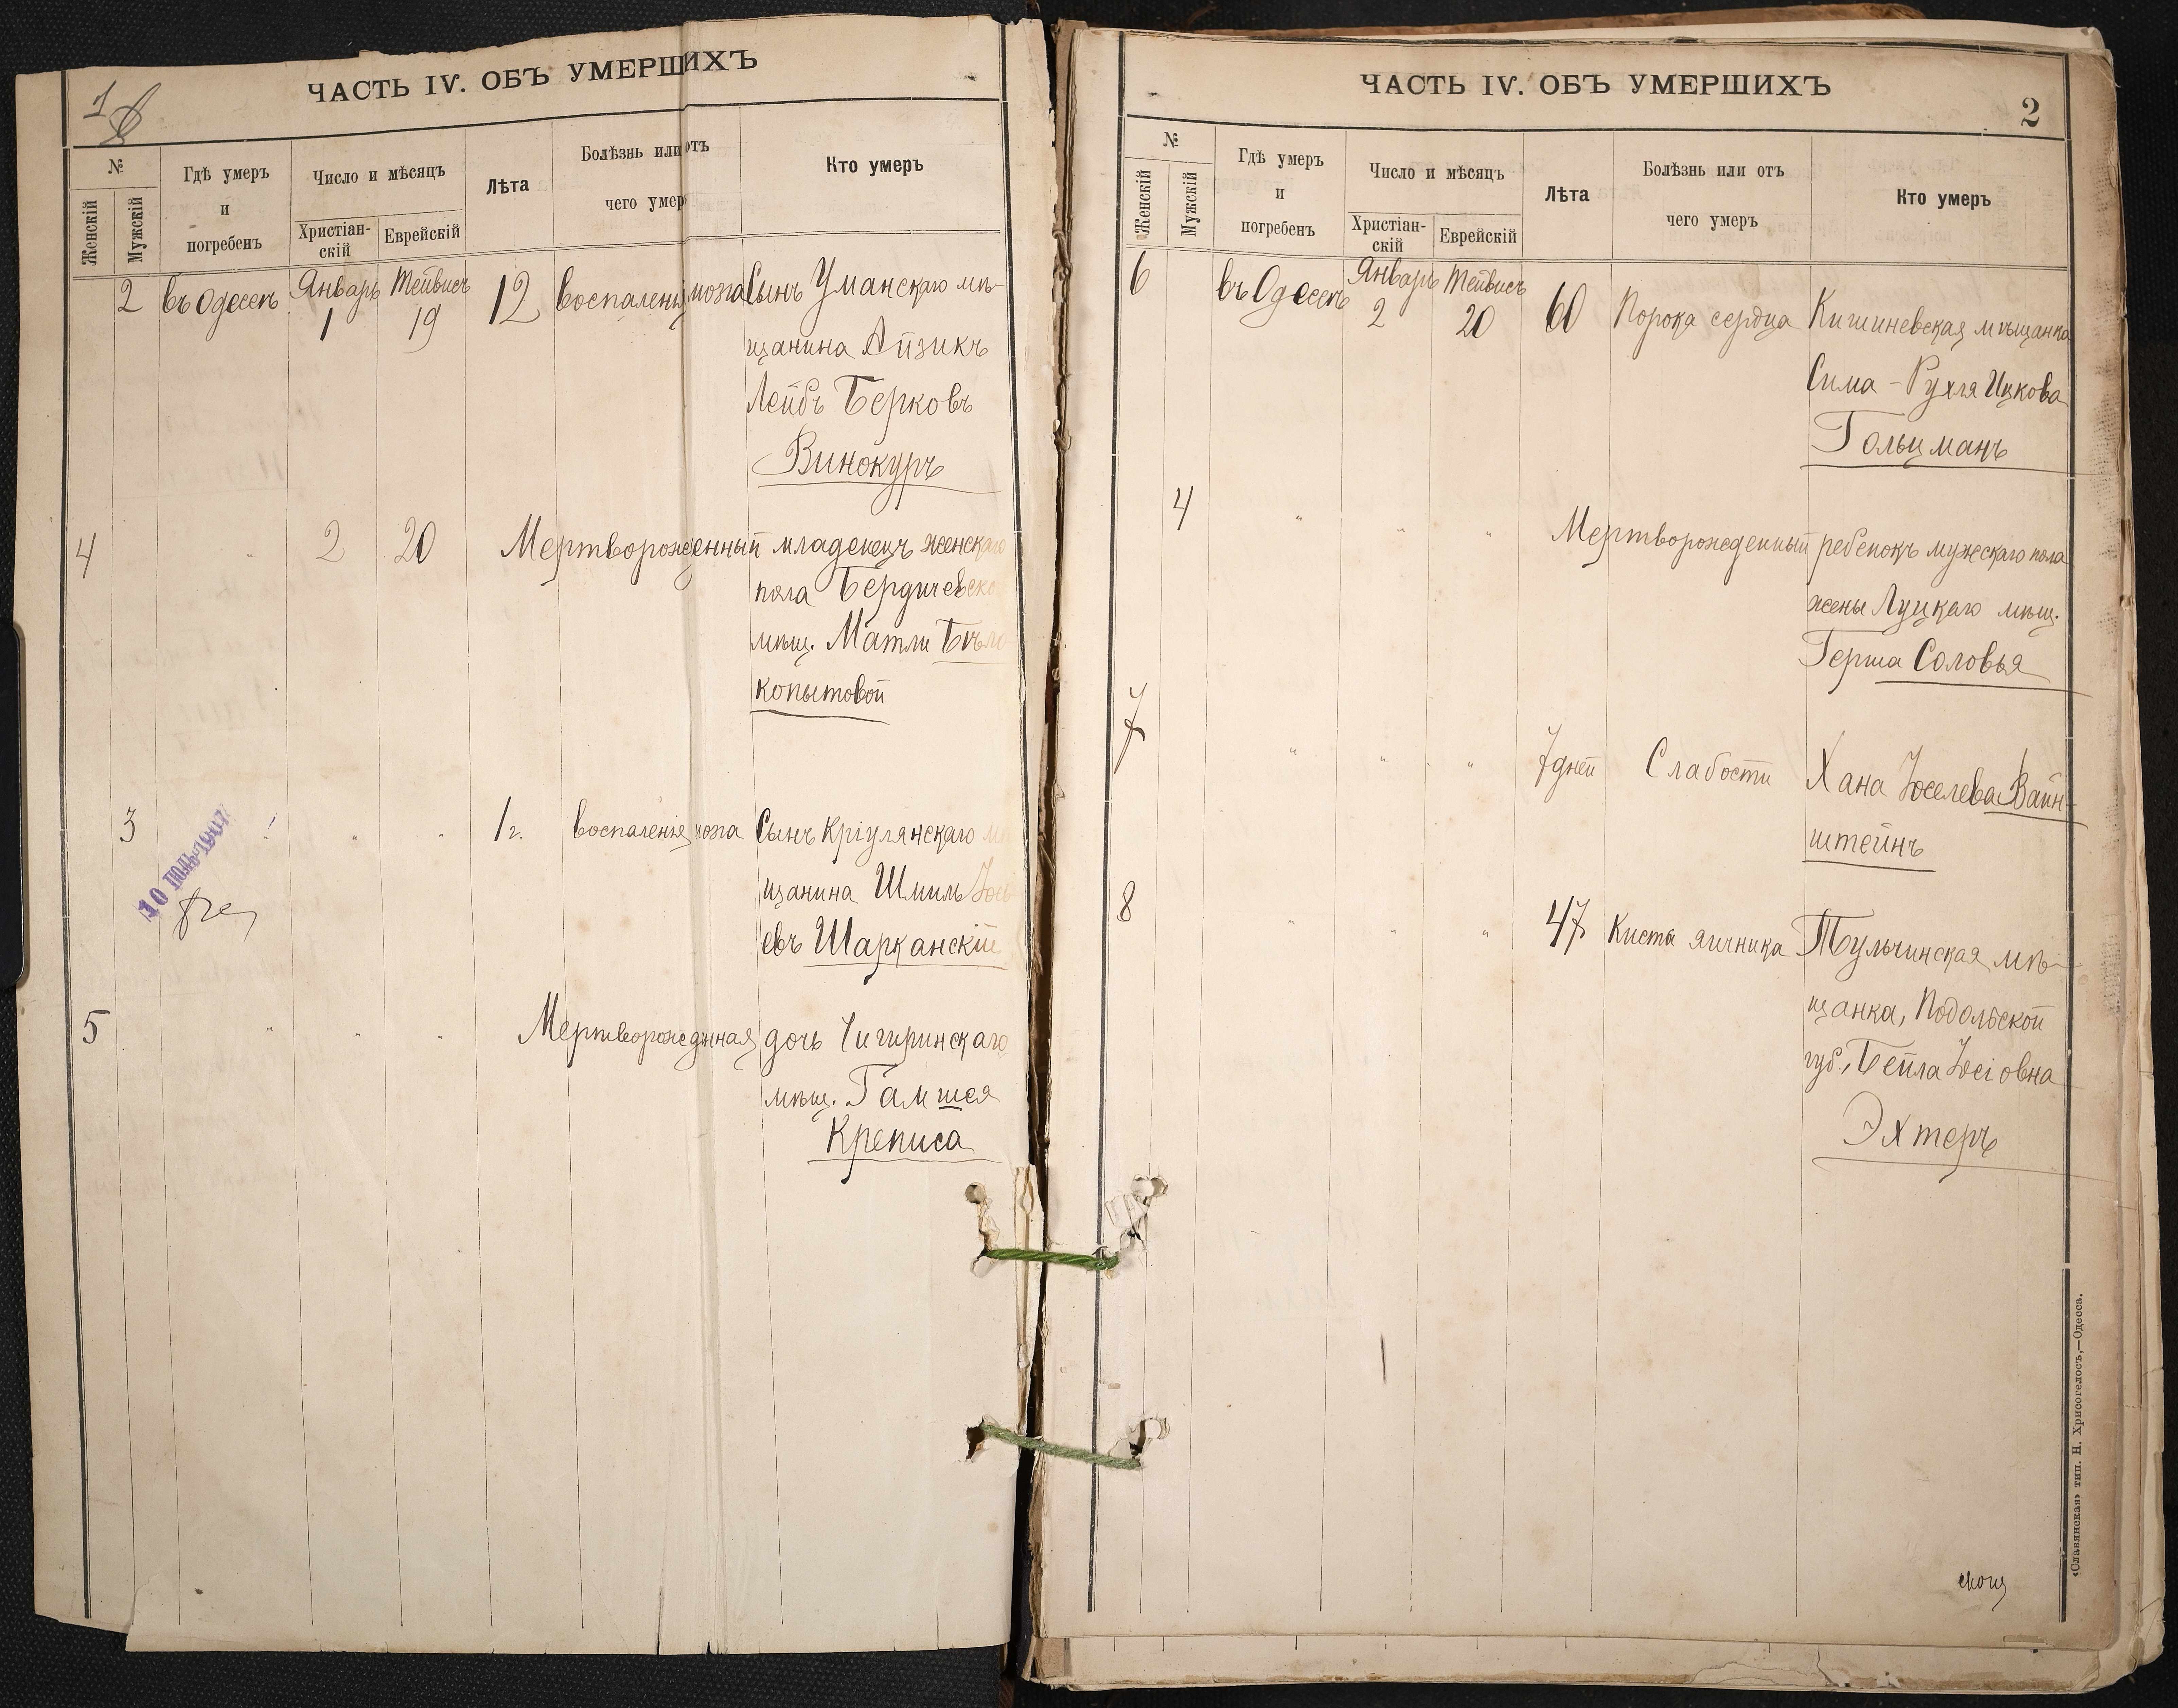 ЧАСТЬ IV. ОБЪ УМЕРШИХЪ
1
№
Женскій
Мужскій
Гдѣ умеръ
и
погребенъ
Число и мѣсяцъ
Христіан-
скій
Еврейскій
Лѣта
Болѣзнь или отъ
чего умеръ
Кто умеръ
2 въ Одессѣ Январь 1 Тейвисъ 19 12 воспаленія мозга Сынъ Уманскаго мѣ-
щанина Айзикъ
Лейбъ Берковъ
Винокуръ
4 " 2 20 Мертворожденный младенецъ женскаго
пола Бердичевской
мѣщ. Матли Бѣло
копытовой
3 " " " 1 г. воспаленія мозга Сынъ Кріулянскаго мѣ
щанина Шмиль Іось
евъ Шарканскій
10 1907
5 " " " Мертворожденная дочь Чигиринскаго
мѣщ. Гамшея
Креписа
ЧАСТЬ IV. ОБЪ УМЕРШИХЪ
2
№
Женскій
Мужскій
Гдѣ умеръ
и
погребенъ
Число и мѣсяцъ
Христіан-
скій
Еврейскій
Лѣта
Болѣзнь или отъ
чего умеръ
Кто умеръ
6 въ Одессѣ Январь 2 Тейвисъ 20 60 Порока сердца Кишиневская мѣщанка
Сима-Рухля Ицкова
Гольцманъ
4 " " " Мертворожденный ребенокъ мужскаго пола
жены Луцкаго мѣщ.
Герша Соловья
7 " " " 7 дней Слабости Хана Іоселева Вайн-
штейнъ
8 " " " 47 Киста яичника Тульчинская мѣ-
щанка, Подольской
губ., Бейла Іосіовна
Эхтеръ
«Славянская» тип. Н. Хрисогелосъ,—Одесса.